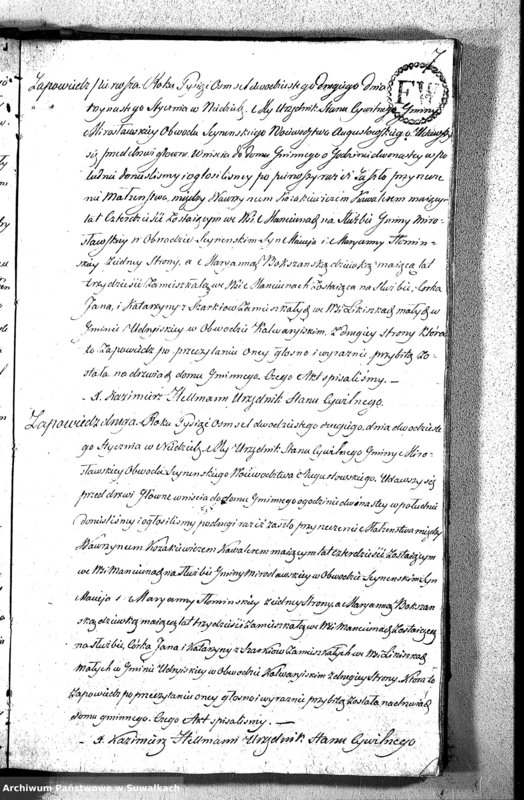 7
FW
Zapowiedz pierwsza. Roku Tysiąc Osmset dwudziestego drugiego dnia
trzynastego Stycznia w Niedzielę. My Urzędnik Stanu Cywilnego Gminy
Mirosławskiey Obwodu Seynenskiego Woiewodztwa Augustowskiego. Udawszy
się przed drzwi główne wniścia do domu Gminnego o Godzinie dwunastey w po-
łudnie donieśliśmy i ogłosiliśmy po pierwszy raz iż zaszło przyrzecze-
nie Małżenstwa, między Wawrzyncem Kozakiewiczem Kawalerem maiącym
lat Czterdzieści Zostaiącym we Wsi Manciunach na Służbie Gminy Miro-
sławskiey w Obwodzie Seynenskim Syn Macieja i Maryanny Słomin-
skiey z iedney Strony, a Maryanną Bokszanską dziewką maiącą lat
trzydzieści Zamieszkałą we Wsi Manciunach Zostaiąca na Służbie, Corka
Jana, i Katarzyny z Szarkiow Zamieszkałych we Wsi Likiszkach małych w
Gminie Udryiskiey w Obwodzie Kalwaryiskim. z drugiey strony Która
to Zapowiedz po przeczytaniu oney głosno i wyraznie przybitą Zo-
stała na drzwiach domu Gminnego. Czego Akt spisaliśmy. —
X. Kazimierz Hellmann Urzędnik Stanu Cywilnego.
Zapowiedz druga. Roku Tysiąc Osmset dwudziestego drugiego, dnia dwudzieste-
go Stycznia w Niedzielę. My Urzędnik Stanu Cywilnego Gminy Miro-
sławskiey Obwodu Seynenskiego Woiewodztwa Augustowskiego. Udawszy się
przed drzwi Główne wniścia do domu Gminnego o godzinie dwunastey w południe
donieśliśmy i ogłosiliśmy, po drugi raz iż zaszło przyrzeczenie Małżenstwa między
Wawrzyncem Kozakiewiczem Kawalerem maiącym lat czterdzieści Zostaiącym
we Wsi Manciunach na Służbie Gminy Mirosławskiey w Obwodzie Seynenskim Syn
Macieja i Maryanny Słominskiey z iedney Strony, a Maryanną Bokszan-
ską dziewką maiącą lat trzydzieści Zamieszkałą we Wsi Manciunach Zostaiącą
na Służbie, Córka Jana i Katarzyny z Szarkiow Zamieszkałych we Wsi Likiszkach
małych w Gminie Udryiskiey w Obwodzie Kalwaryiskim z drugiey Strony. Która to
Zapowiedz po przeczytaniu oney głosno i wyraznie przybitą Została na drzwiach
domu gminnego. Czego Akt spisaliśmy. —
X. Kazimierz Hellmann Urzędnik Stanu Cywilnego
Archiwum Państwowe w Suwałkach